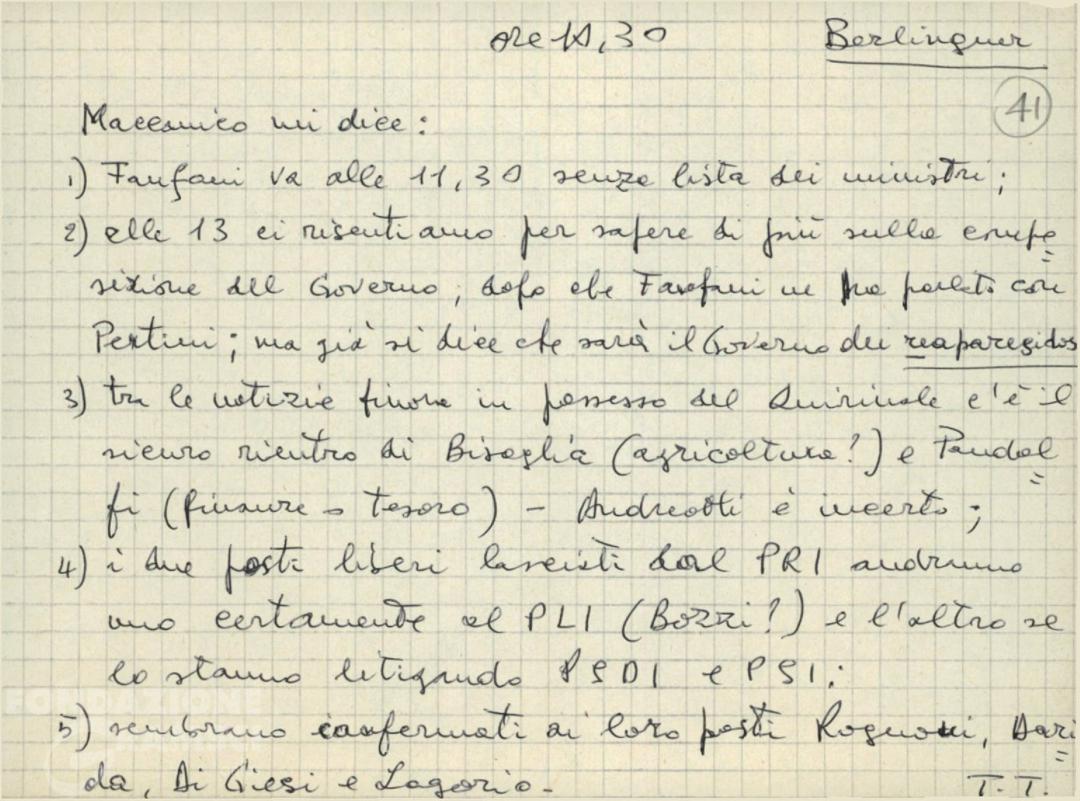 ore 10,30 Berlinguer
41
Maccanico mi dice:
1) Fanfani va alle 11,30 senza lista dei ministri;
2) alle 13 ci risentiamo per sapere di più sulla compo=
sizione del Governo, dopo che Fanfani ne ha parlato con
Pertini; ma già si dice che sarà il Governo dei reaparecidos
3) tra le notizie finora in possesso del Quirinale c'è il
sicuro rientro di Bisaglia (agricoltura?) e Pandol=
fi (finanze o tesoro) - Andreotti è incerto;
4) i due posti liberi lasciati dal PRI andranno
uno certamente al PLI (Bozzi?) e l'altro se
lo stanno litigando PSDI e PSI;
5) sembrano confermati ai loro posti Rognoni, Dari=
da, Di Giesi e Lagorio.
T.T.
FONDAZIONE